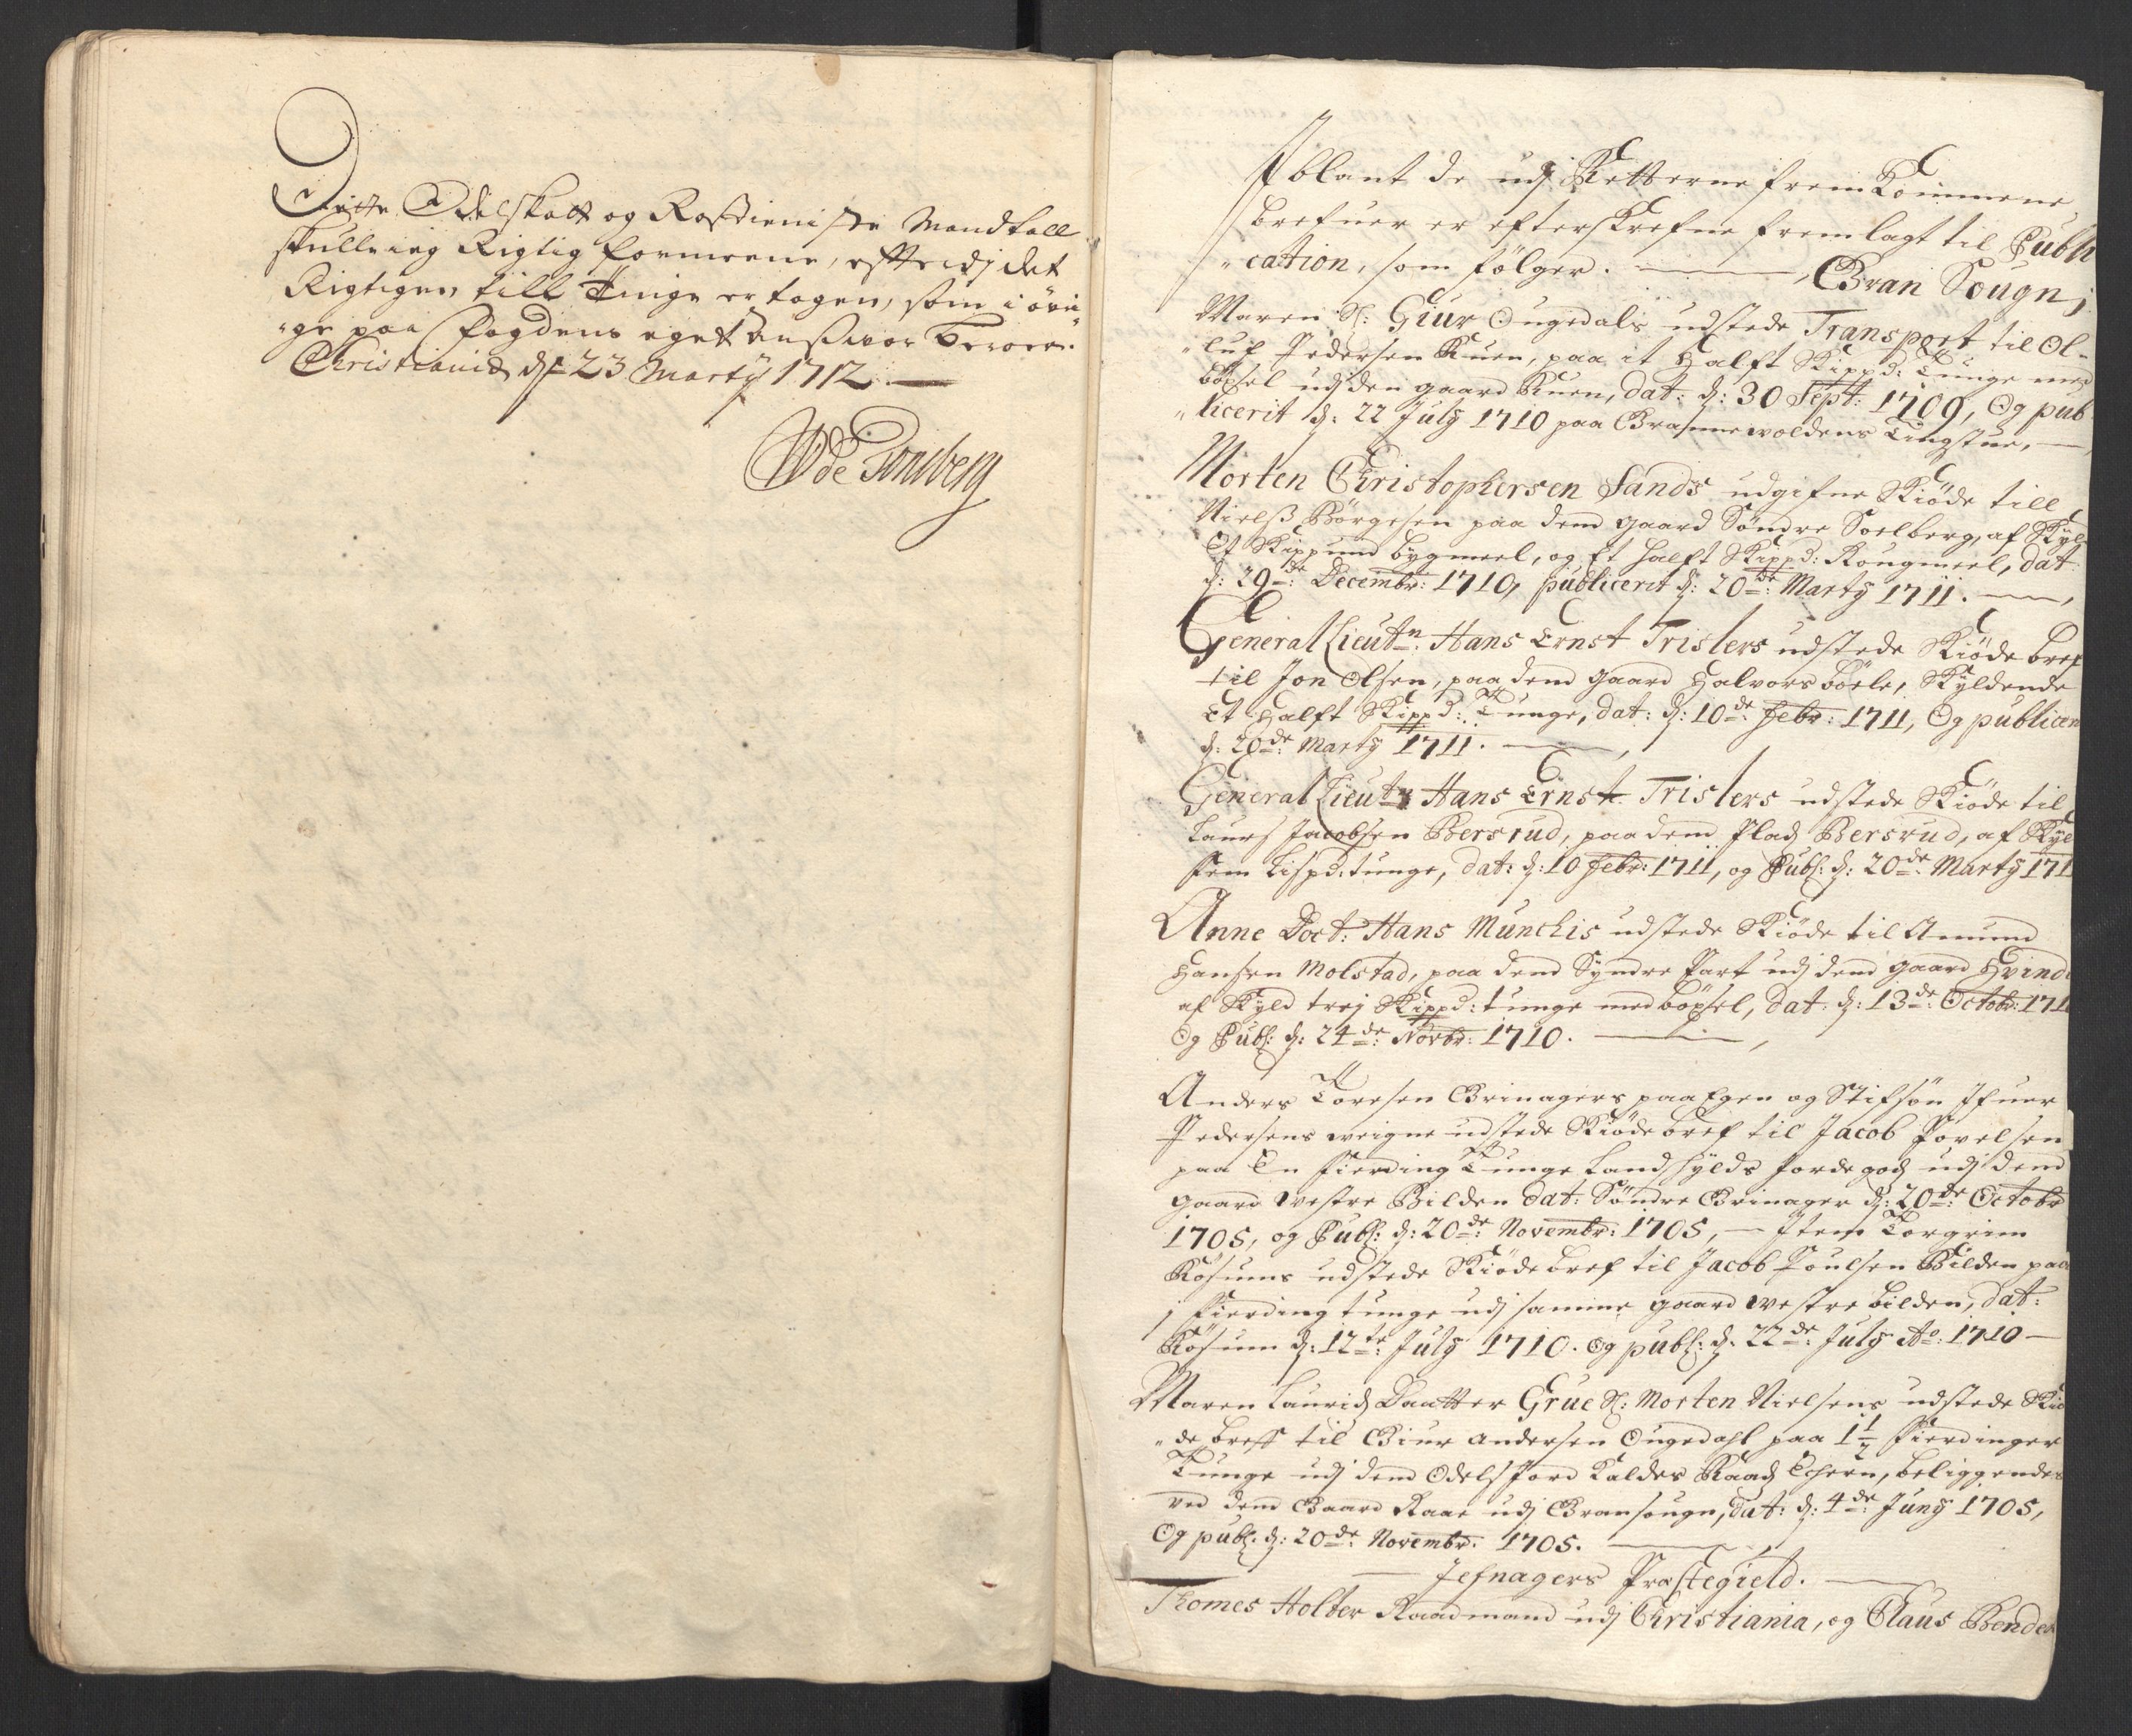 Dette Odelskatt og Rostieniste Mandtall
skulle ieg Rigtig formeene, effterdj det
Rigtigen till Tinge er tagen, som i övri
"ge paa fogdens eget ansvar beroer.
Christiania dſ 23 Martÿ 1712
WDe Tonsberg
Iblant de udj Retterne fremkommene
brefuer er efterskrefne fremlagt til Publi
"cation, som fölger. Gran Sougn;
Maren Sl: Giur Ougedals udstede Transport til Ol-
"luf Pedersen Ruen, paa it halft Skippd: Tunge med
böxsel udj den gaard Ruen, dat: d: 30 Sept: 1709, Og pub
"licerit d: 22 July 1710 paa Grannevoldens Tingstue,
Morten Christophersen Sands udgifne Skiöde till
Nielß Börgesen paa dend gaard Söndre Soelberg, af Skyl
Et Skippund bygmeel, og Et halft Skippd: Rougmeel, dat:
d: 29de: Decembr: 1710, publicerit d: 20de: Marty 1711.
General Lieutn: Hans Ernst Tristers udstede Skiöde bref
til Jon Olsen, paa dend gaard Halvorsböele, Skyldende
Et halft Skippd: Tunge, dat: d: 10de: Febr: 1711, Og publicer
d: 20de: Marty 1711.
General Lieutn Hans Ernst Tristers udstede Skiöde til
Laurs Jacobsen Bersrud, paa dend Plads Bersrud, af Skyl
fem Lispd: tunge, dat: d: 10 Febr: 1711, og Publ: d: 20de: Marty 171
Anne Doct: Hans Munchis udstede Skiöde til Amund
Hansen Molstad, paa dend Syndre Part udj dend gaard Hvind
af Skyld trej Skippd: tunge med böxsel, dat: d: 13de: Octobr: 171
Og Publ: d: 24de: Novbr: 1710.
Anders Toresen Grinagers paa Egen og Stifsön Ifuer
Pedersens weigne udstede Skiöde bref til Jacob Povelsen
paa En fierding Tunge Landskylds Jordegods udj dend
gaard Vestre Bilden dat: Söndre Grinager d: 20de: Octobr
1705, og Publ: d: 20de: Novembr: 1705, Item Torgrim
Rösums udstede Skiöde bref til Jacob Poulsen Bilden paa
j fierding tunge udj samme gaard Vestre bilden, dat:
Rösum d: 12te: July 1710. Og publ: d: 22de: July Ao: 1710
Maren Laurids Daatter Grue Sl: Morten Nielsens udstede Skiö
"de breff til Giur Andersen Ougedahl paa 1 1/2 fierdinger
Tunge udj dend Odels Jord kaldes Raads Echern, beliggendes
ved dend Gaard Raae udj Gran sougn, dat: d: 4de: Juny 1705,
Og publ: d: 20de: Novembr: 1705.
Jefnagers Præstegield.
Thomes Holter Raadmand udj Christiania, og Claus Bender